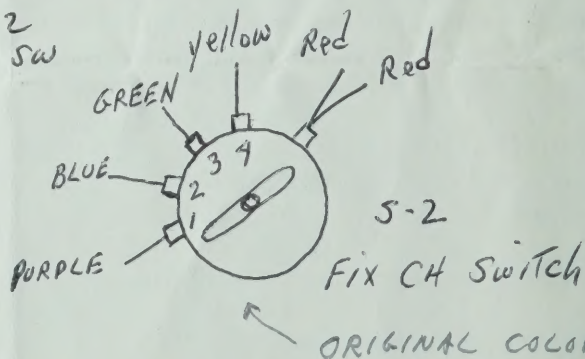 2
SW
yellow
Red
Red
GREEN
BLUE
PURPLE
1
2
3
4
S-2
Fix CH Switch
ORIGINAL COLO